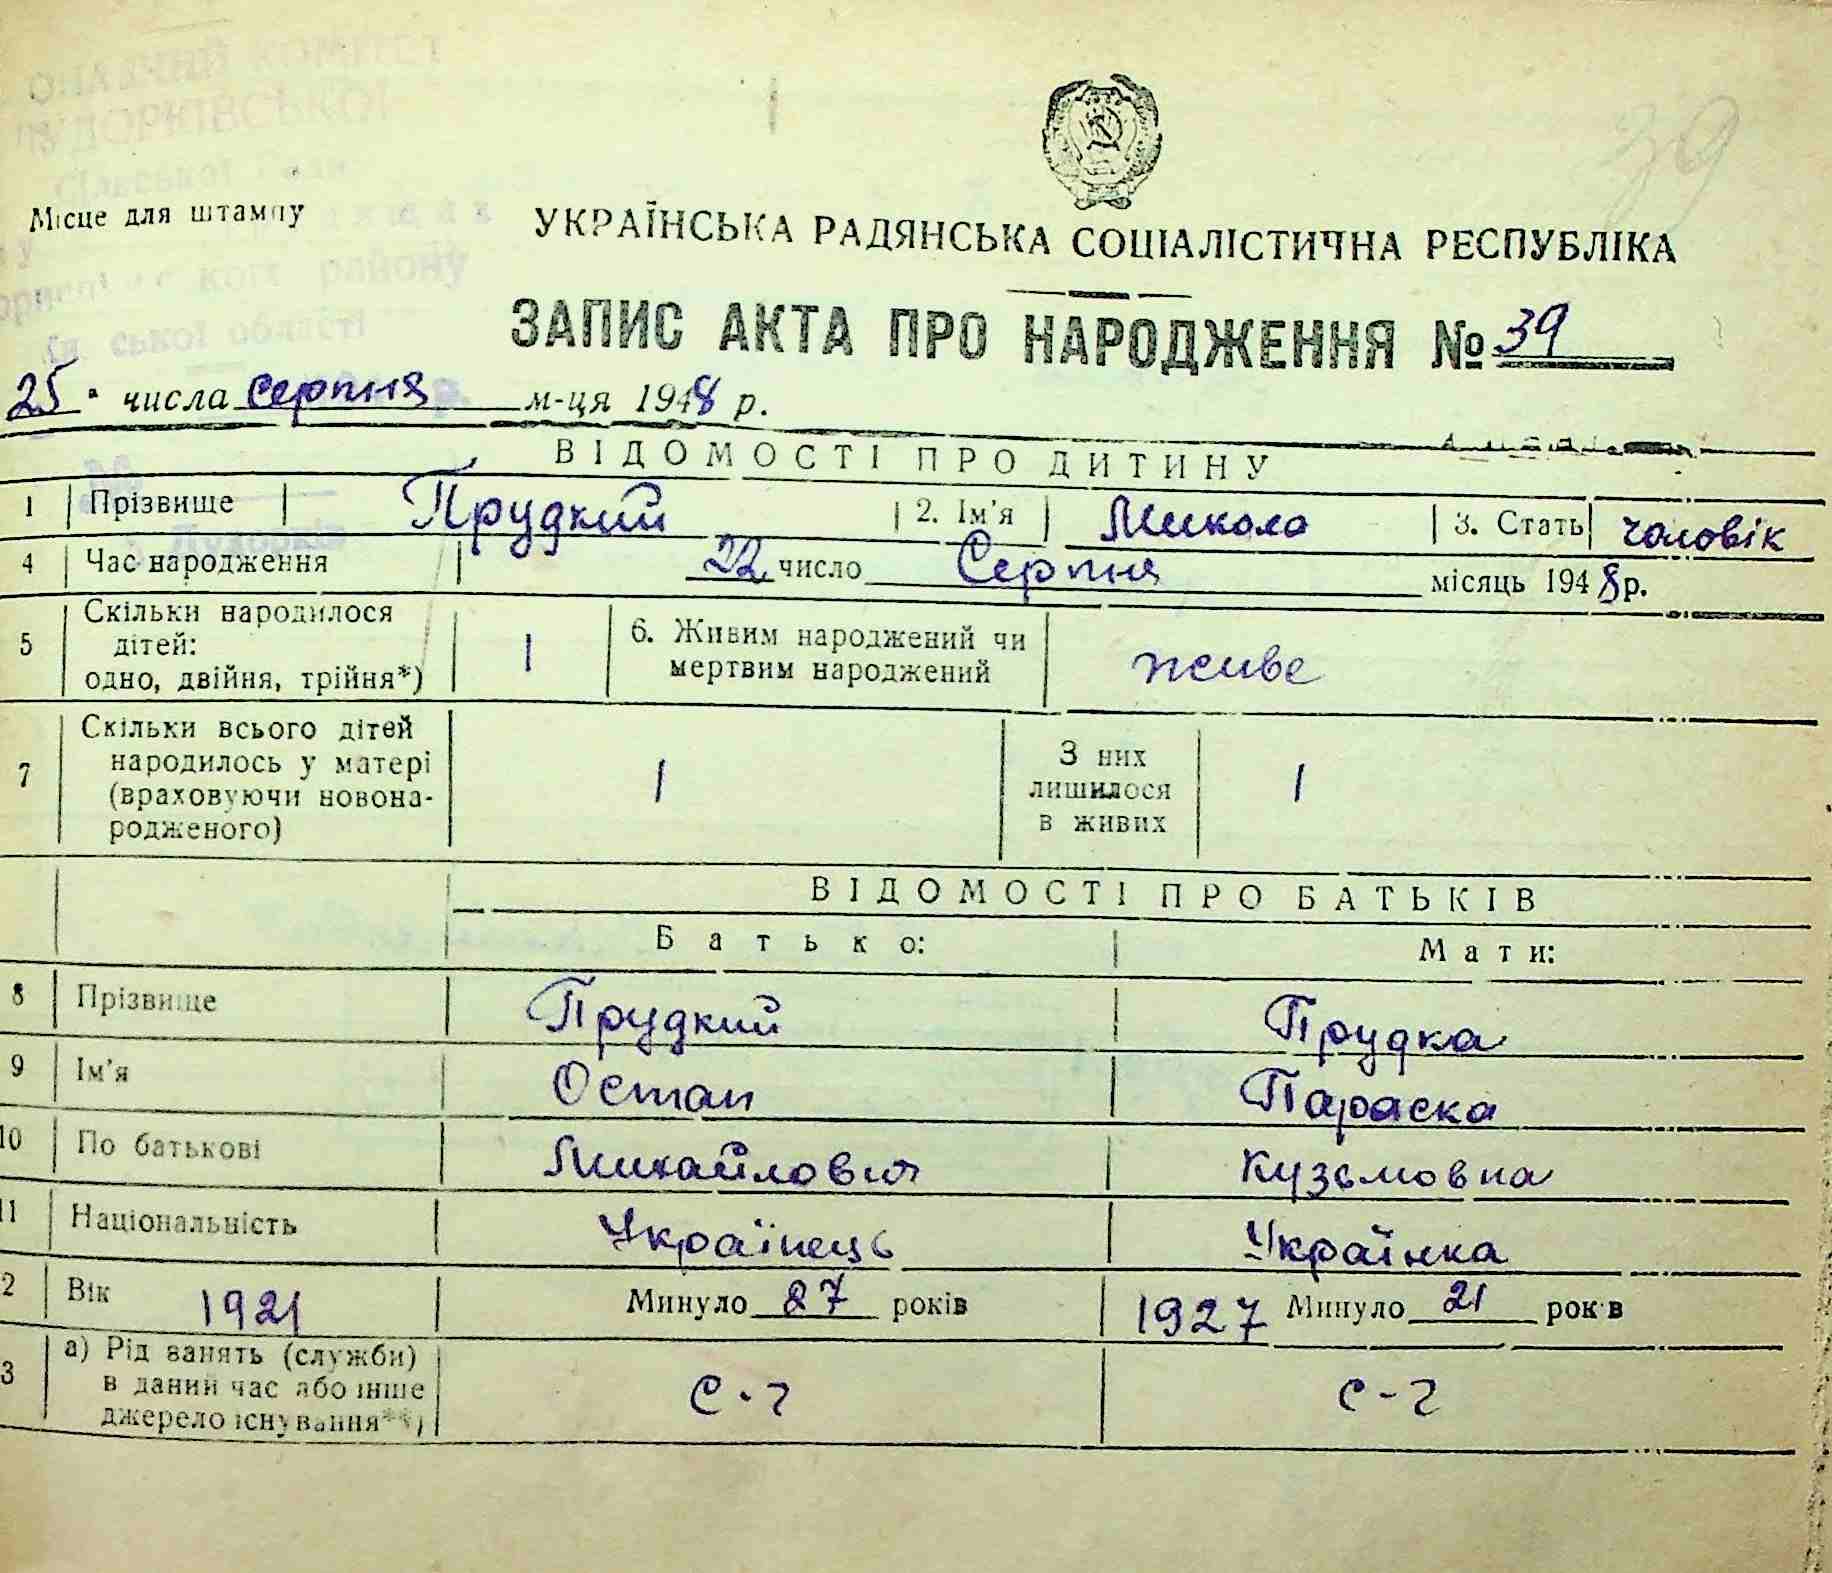 КОМІТЕТ
Сільської Ради
району
ської області
39
Місце для штампу
УКРАЇНСЬКА РАДЯНСЬКА СОЦІАЛІСТИЧНА РЕСПУБЛІКА
ЗАПИС АКТА ПРО НАРОДЖЕННЯ № 39
25 числа Серпня м-ця 1948 р.
ВІДОМОСТІ ПРО ДИТИНУ
1 Прізвище Прудкий 2. Ім'я Микола 3. Стать чоловік
4 Час народження 22 число Серпня місяць 1948 р.
5 Скільки народилося дітей: одно, двійня, трійня*) 1 6. Живим народжений чи мертвим народжений живе
7 Скільки всього дітей народилось у матері (враховуючи новонародженого) 1 З них лишилося в живих 1
ВІДОМОСТІ ПРО БАТЬКІВ
Батько: Мати:
8 Прізвище Прудкий Прудка
9 Ім'я Остап Параска
10 По батькові Михайлович Кузьмовна
11 Національність Українець Українка
2 Вік 1921 Минуло 27 років 1927 Минуло 21 років
3 а) Рід занять (служби) в даний час або інше джерело існування**) с-г с-г